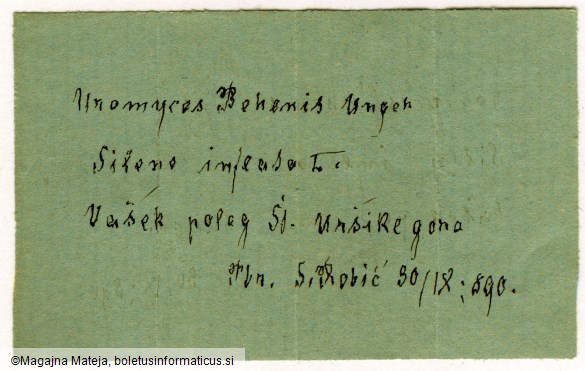 Uromyces Behenis Unger
Silene inflata L.
Vašek poleg Št. Uršike gora
S. Robić 30/IX; 890.
©Magajna Mateja, boletusinformaticus.si